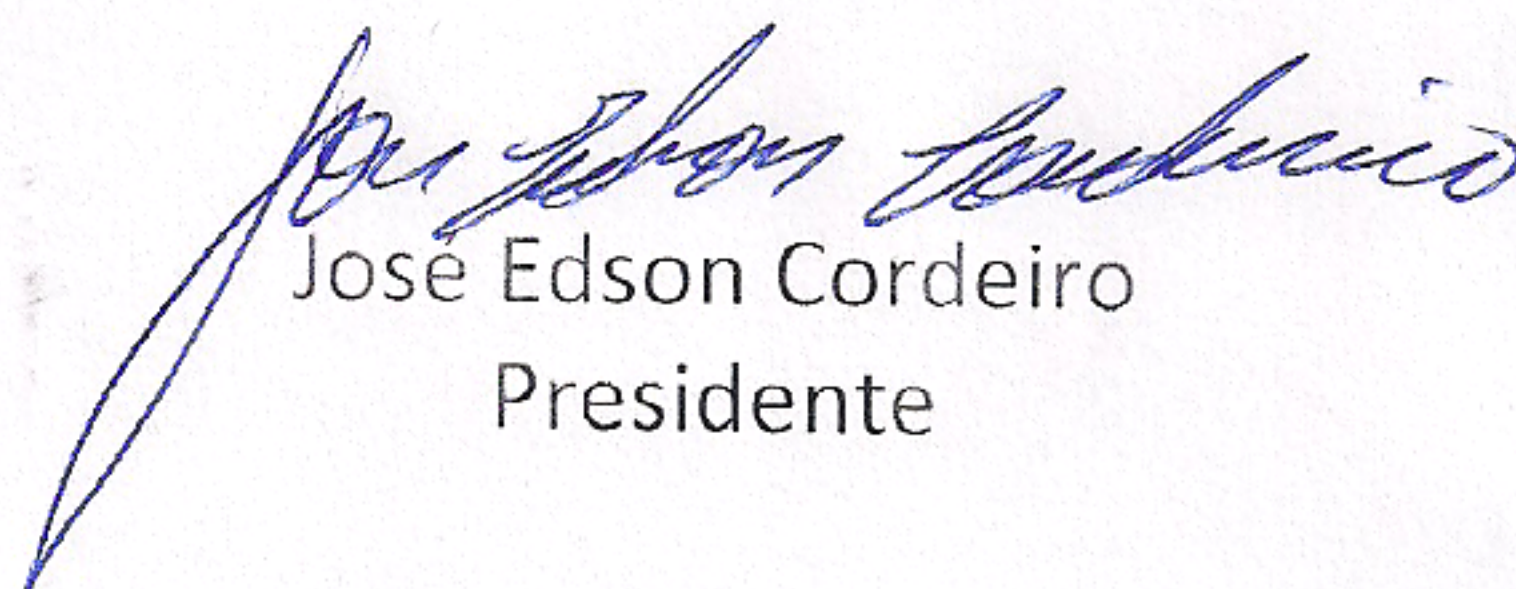 José Edson Cordeiro
José Edson Cordeiro
Presidente